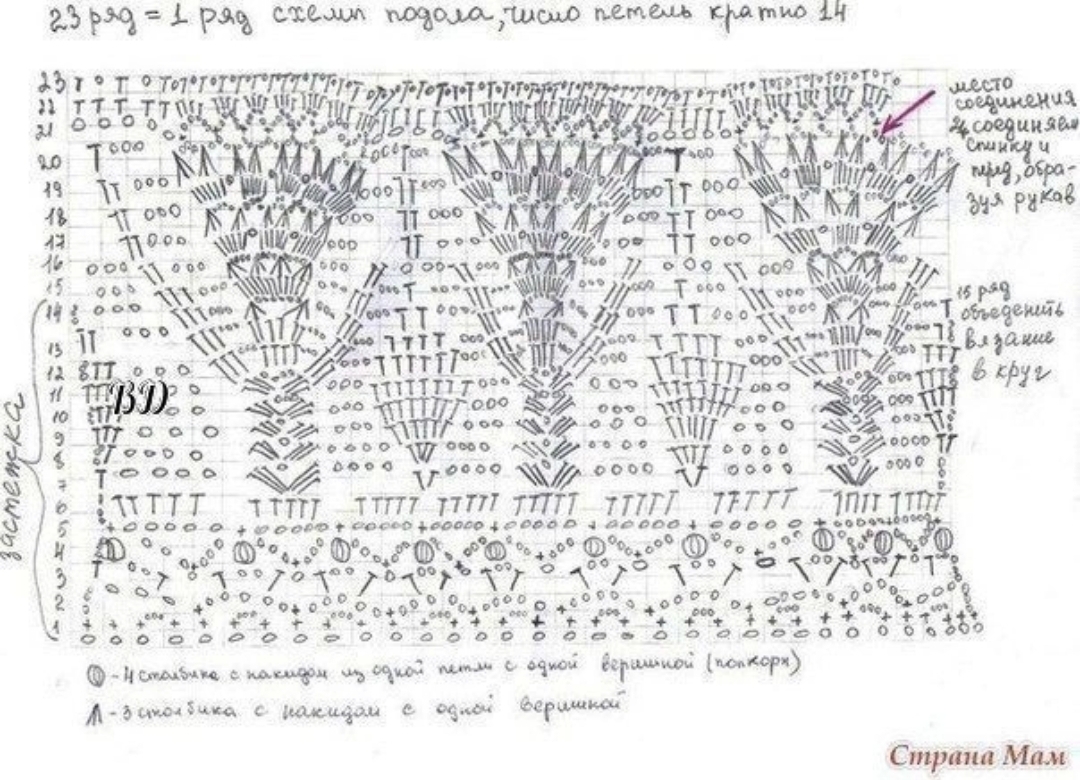 23 ряд = 1 ряд схемы подола, число петель кратно 14
23
22
21
20
19
18
17
16
15
14
13
12
11
10
9
8
7
6
5
4
3
2
1
BD
застежка
место
соединения
соединяем
спинку и
пред, обра-
зуя рукав
15 ряд
вязание
в круг
- 4 столбика с накидом из одной петли с одной вершиной (попкорн)
- 3 столбика с накидом с одной вершиной
Страна Мам